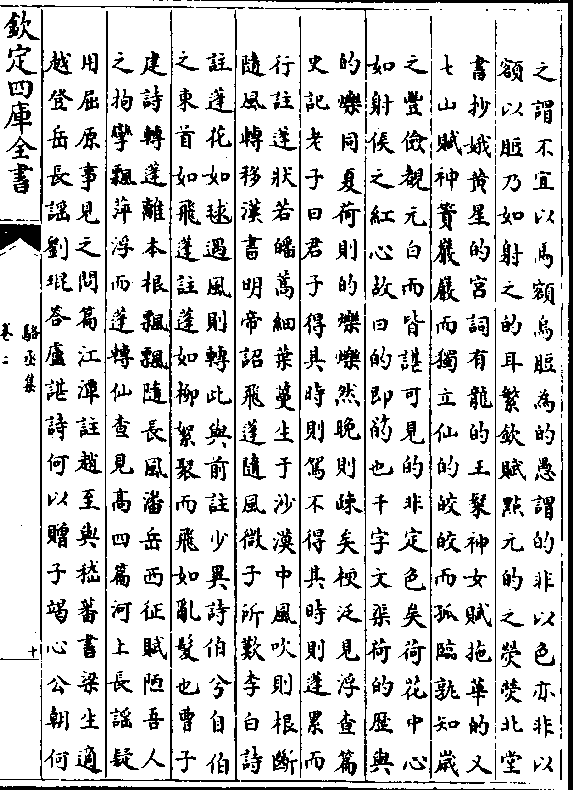 之謂不宜以馬額烏䏢為的愚謂的非以色亦非以
額以䏢乃如射之的耳繁欽賦點元的之熒熒北堂
書抄娥黄星的宮詞有龍的王粲神女賦拖華的又
七山賦神賽巖巖而獨立仙的皎皎而孤臨孰知歲
之豐儉覩元白而皆諶可見的非定色矣荷花中心
如射侯之紅心故曰的即菂也千字文渠荷的歷與
的爍同夏荷則的爍爍然晚則疎矣梗泛見浮查篇
史記老子曰君子得其時則駕不得其時則蓬累而
行註蓬狀若皤蒿細葉蔓生于沙漠中風吹則根斷
隨風轉移漢書明帝詔飛蓬隨風微子所歎李白詩
註蓬花如毬遇風則轉此與前註少異詩伯兮自伯
之東首如飛蓬註蓬如柳絮聚而飛如亂髮也曹子
建詩轉蓬離本根飄飄隨長風潘岳西征賦陋吾人
之拘攣飄萍浮而蓬轉仙查見髙四篇河上長謡疑
用屈原事見之問篇江潭註趙至與嵇蕃書梁生適
越登岳長謡劉琨答盧諶詩何以贈子竭心公朝何
欽定四庫全書
駱丞集
卷二
十